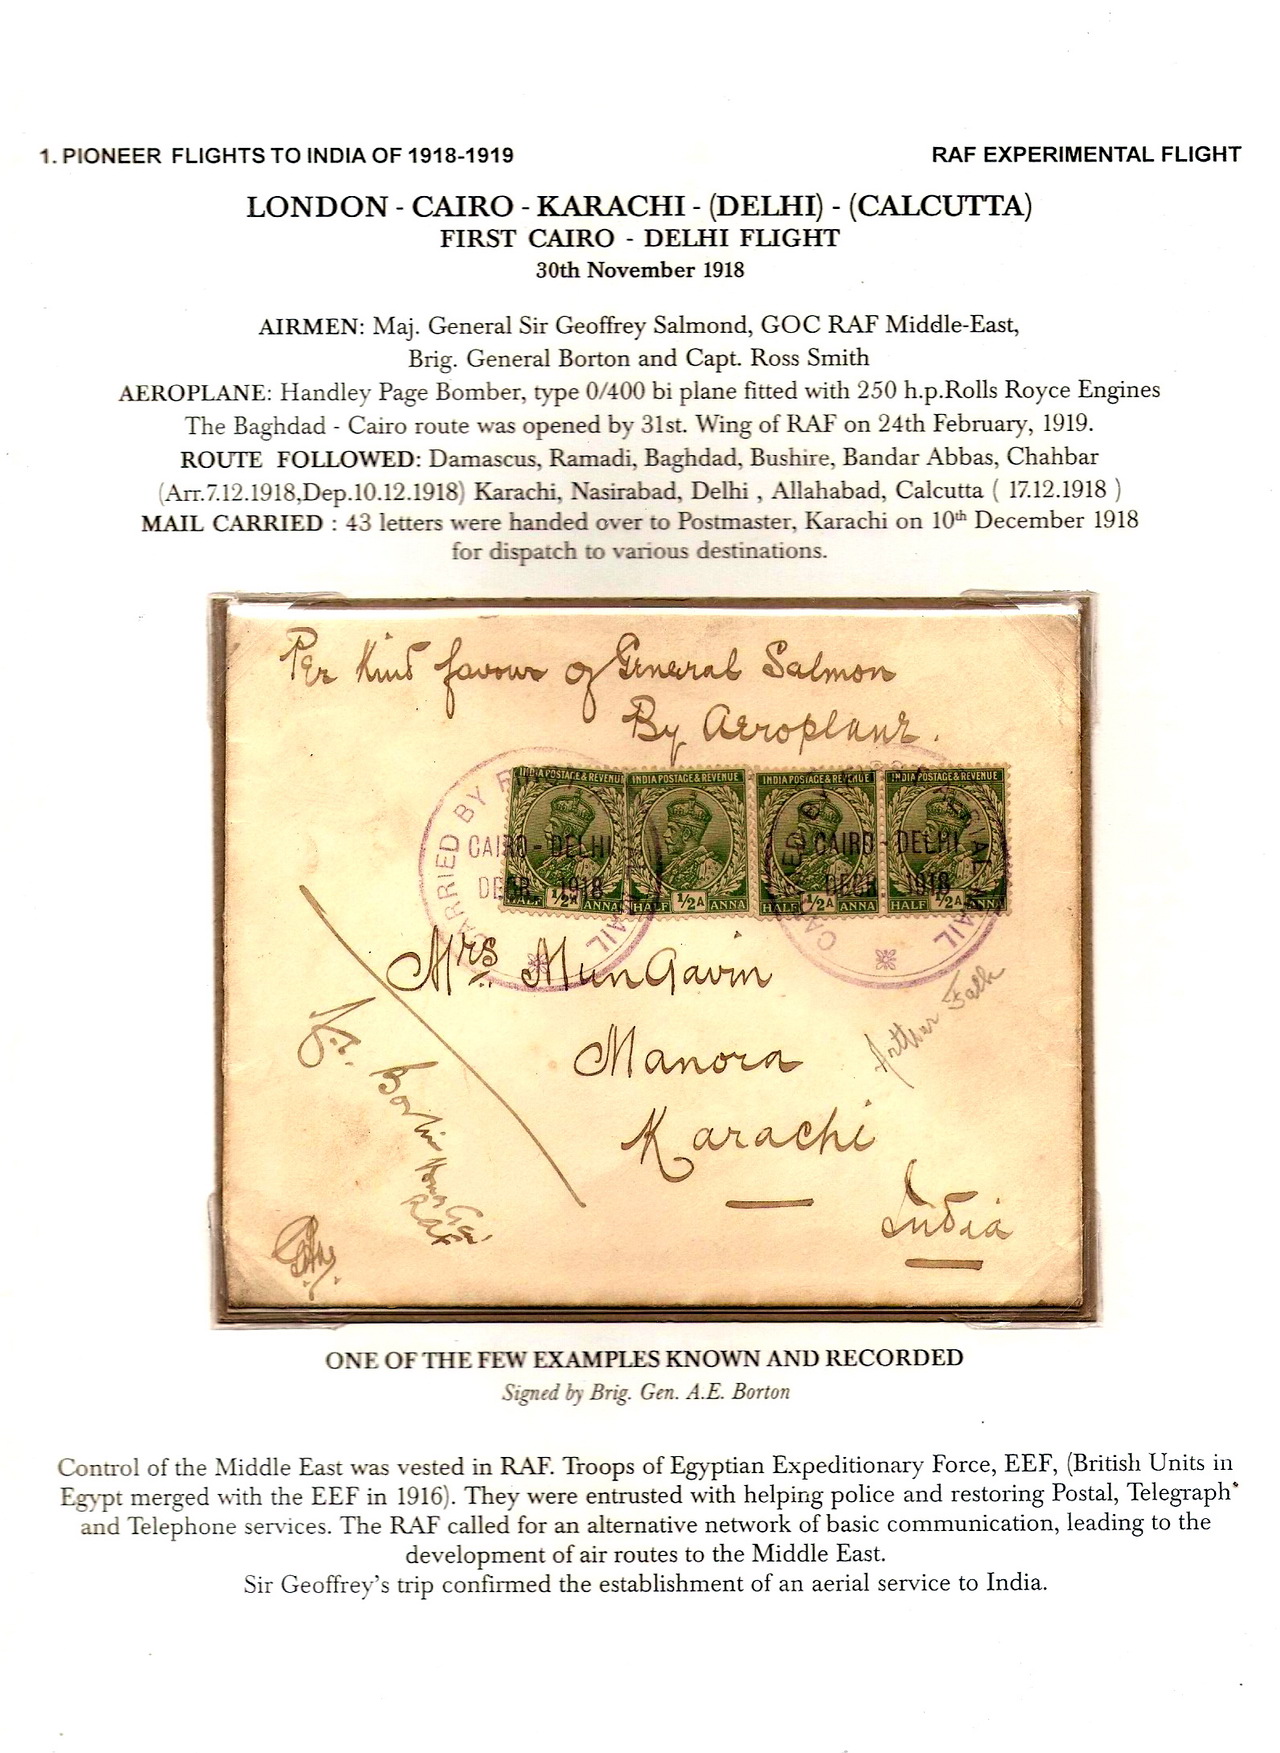 1. PIONEER FLIGHTS TO INDIA OF 1918-1919
RAF EXPERIMENTAL FLIGHT
LONDON - CAIRO - KARACHI - (DELHI) - (CALCUTTA)
FIRST CAIRO - DELHI FLIGHT
30th November 1918
AIRMEN: Maj. General Sir Geoffrey Salmond, GOC RAF Middle-East,
Brig. General Borton and Capt. Ross Smith
AEROPLANE: Handley Page Bomber, type 0/400 bi plane fitted with 250 h.p.Rolls Royce Engines
The Baghdad - Cairo route was opened by 31st. Wing of RAF on 24th February, 1919.
ROUTE FOLLOWED: Damascus, Ramadi, Baghdad, Bushire, Bandar Abbas, Chahbar
(Arr.7.12.1918,Dep.10.12.1918) Karachi, Nasirabad, Delhi , Allahabad, Calcutta ( 17.12.1918 )
MAIL CARRIED : 43 letters were handed over to Postmaster, Karachi on 10th December 1918
for dispatch to various destinations.
Per Kind favour of General Salmon
By Aeroplane.
INDIA POSTAGE & REVENUE INDIA POSTAGE & REVENUE INDIA POSTAGE & REVENUE INDIA POSTAGE & REVENUE
CARRIED BY MAIL
CAIRO - DELHI
DECR 1918
CAIRO - DELHI
DECR 1918
MAIL
HALF 1/2A ANNA HALF 1/2A ANNA HALF 1/2A ANNA HALF 1/2A ANNA
Mrs. MunGavin
Manora
Karachi
India
Arthur Falk
Borton
RAF
ONE OF THE FEW EXAMPLES KNOWN AND RECORDED
Signed by Brig. Gen. A.E. Borton
Control of the Middle East was vested in RAF. Troops of Egyptian Expeditionary Force, EEF, (British Units in
Egypt merged with the EEF in 1916). They were entrusted with helping police and restoring Postal, Telegraph*
and Telephone services. The RAF called for an alternative network of basic communication, leading to the
development of air routes to the Middle East.
Sir Geoffrey's trip confirmed the establishment of an aerial service to India.